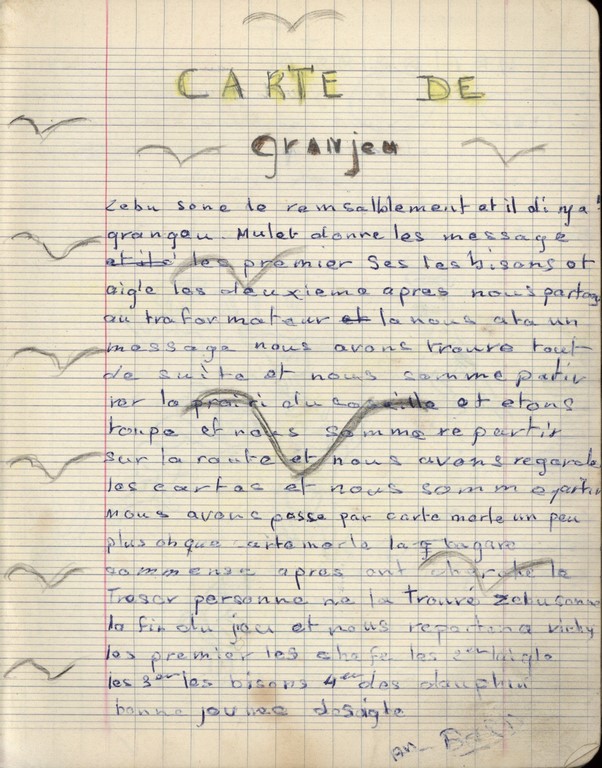 CARTE DE
granjeu
Zebu sone le remsalblement et il di n'ya
grangeu. Mulet donne les message
et ils les premier Ses les bisons et
aigle les deuxieme apres nous partons
au traformateur et la nous ata un
message nous avons trouve tout
de suite et nous somme patir
ver la prairi du et etons
toupe et nous somme repartir
sur la route et nous avons regarde
les cartas et nous somme partir
nous avons passe par carte morle un peu
plus oh que carte morle la bagare
sommense apres ont cherche le
Tresor personne ne la trouvé zebu sonne
la fin du jeu et nous repartons vichy
les premier les chefe les 2er laigle
les 3er les bisons 4er des dauphin
bonne journee desigle